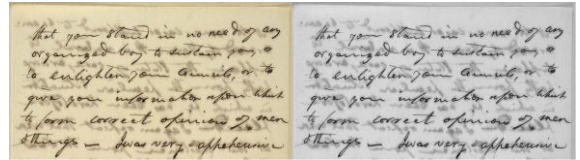 that you stand in no need of any
organized boy to sustain you, or
to enlighten your councils, or to
give you information upon which
to form correct opinions of men
& things — I was very apprehensive
that you stand in no need of any
organized boy to sustain you, or
to enlighten your councils, or to
give you information upon which
to form correct opinions of men
& things — I was very apprehensive